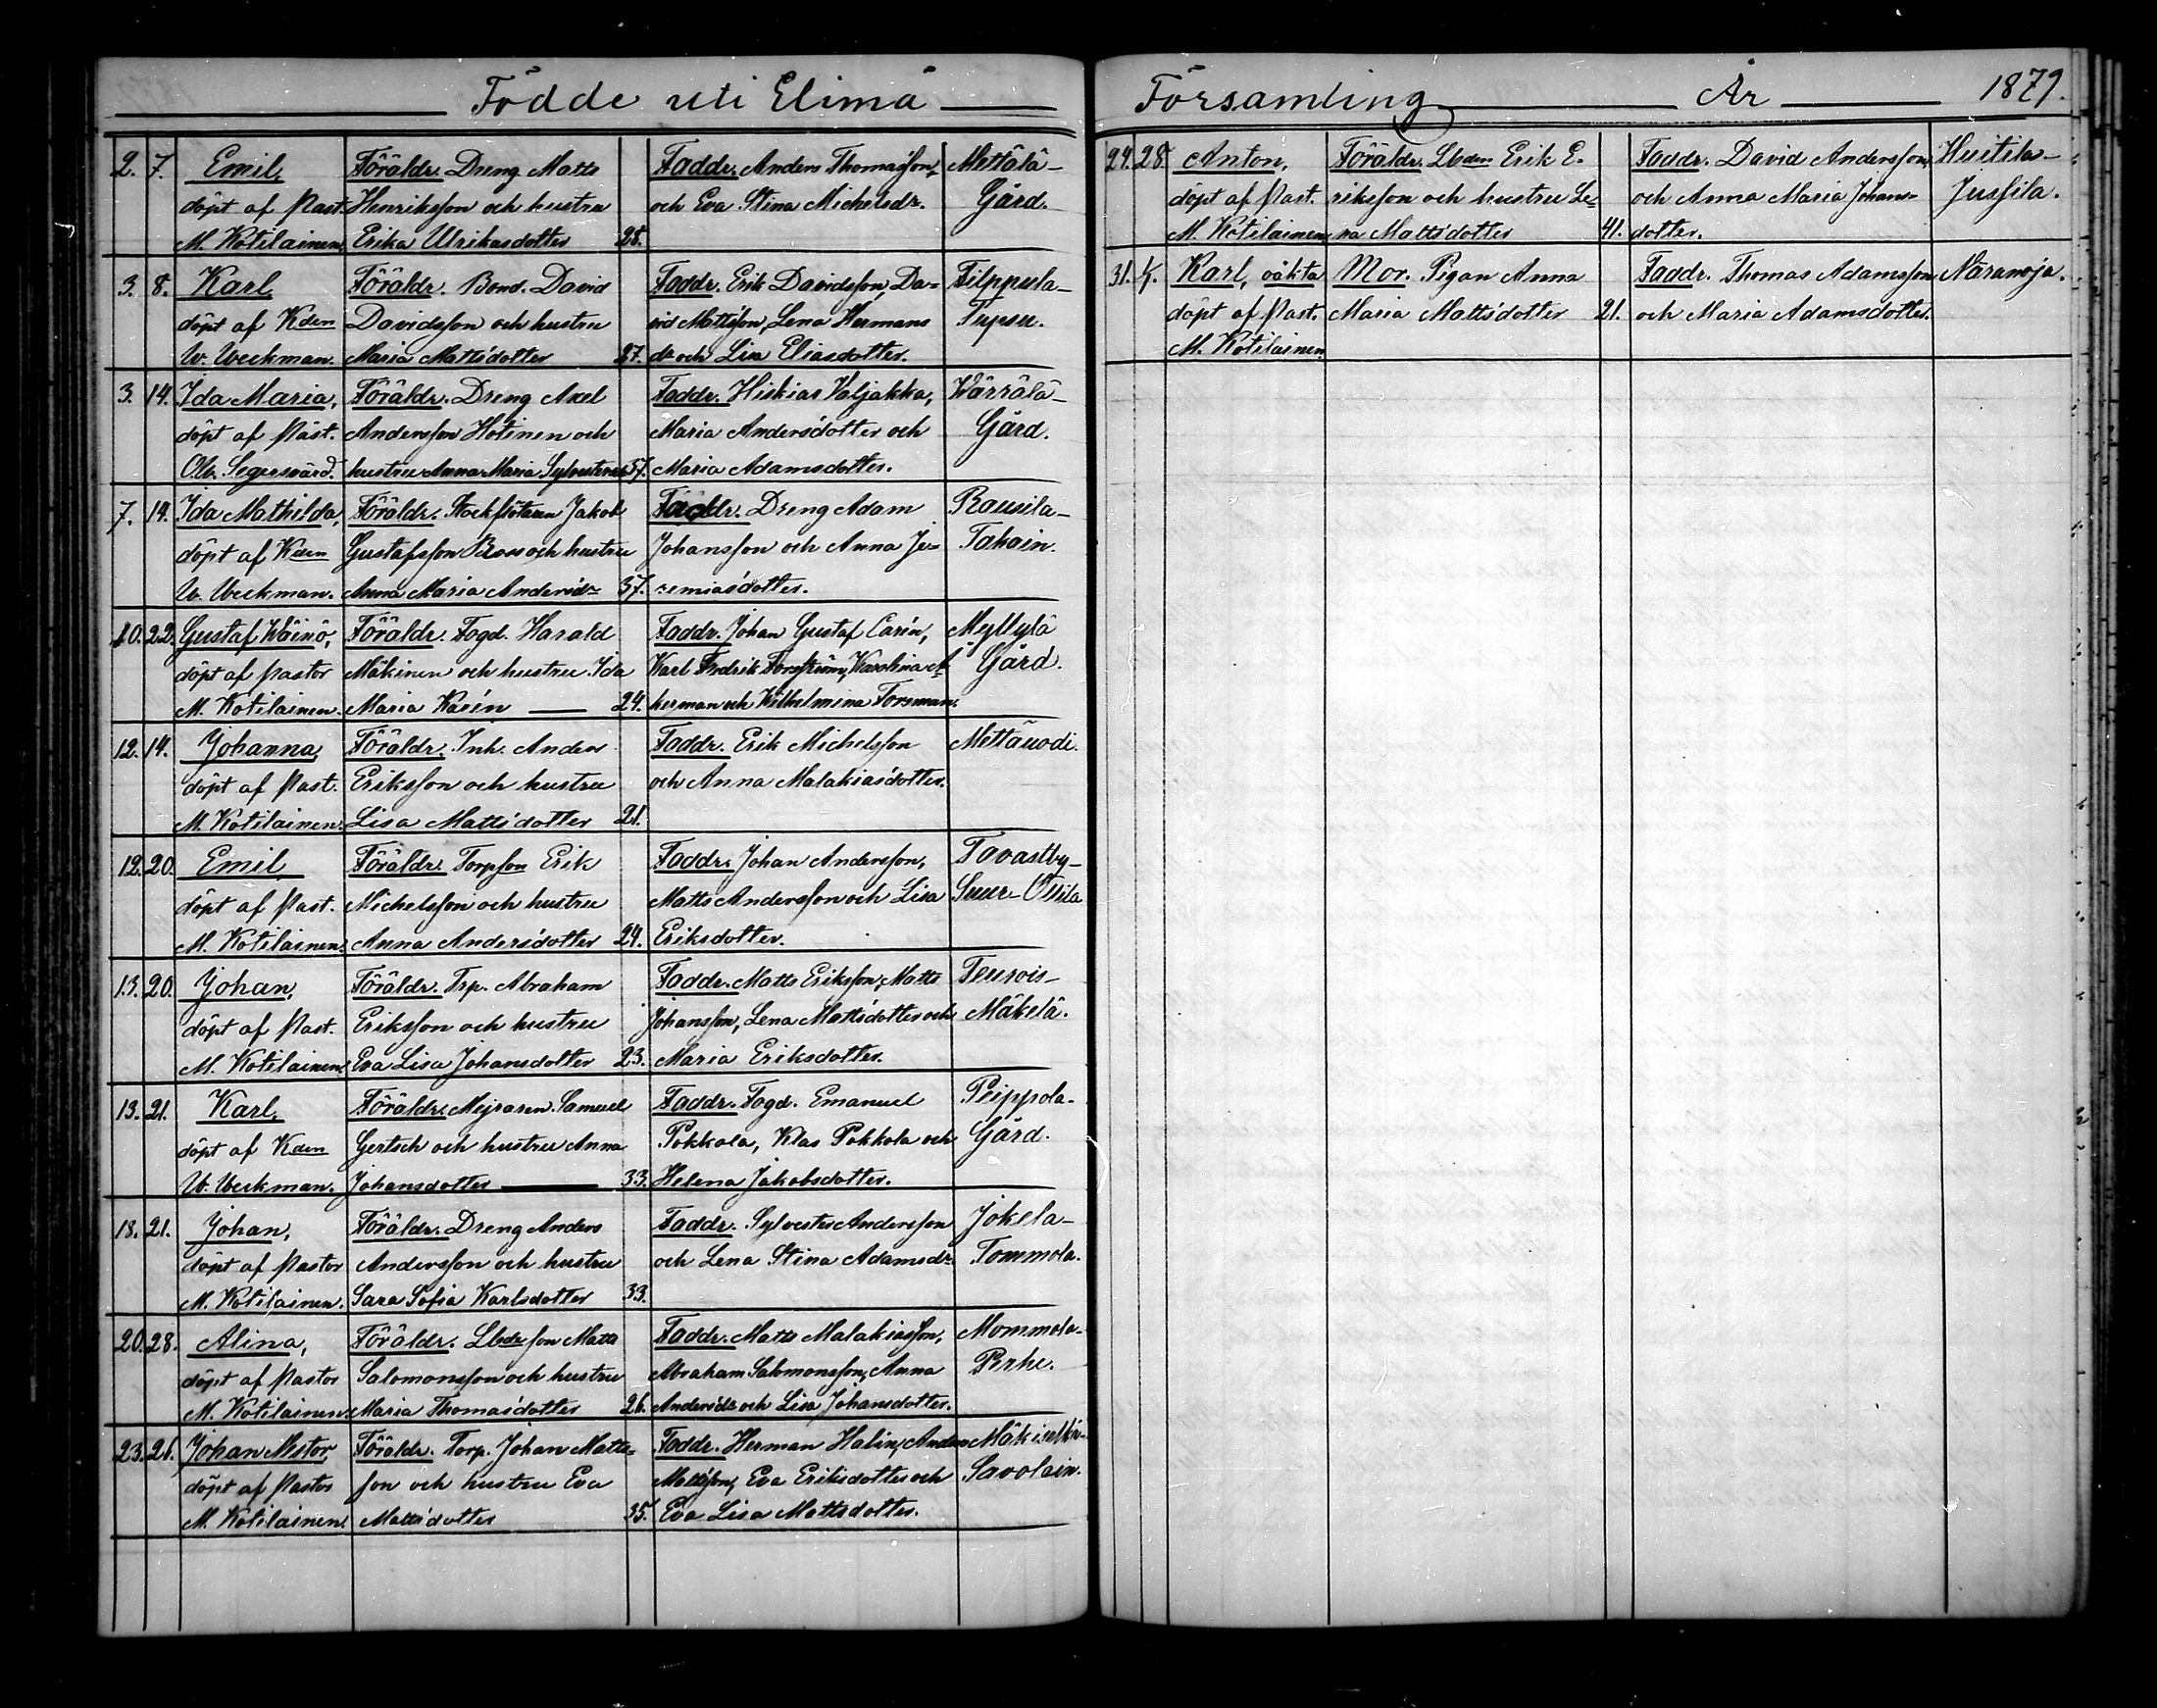 Födde uti Elimä
2. 7. Emil, Föräldr. Dreng Matts Faddr. Anders Thomasson, Mettälä-
döpt af Past. Henriksson och hustru och Eva Stina Michelsdr. Gård.
M. Kotilainen. Erika Ulrikasdotter 28.
3. 8. Karl, Föräldr. Bond. David Faddr. Erik Davidsson, Da- Filppula-
döpt af Kden Davidsson och hustru vid Mattsson, Lena Hermans Tupsu.
W. Weckman. Maria Mattsdotter 27. dr och Lisa Eliasdotter.
3. 14. Ida Maria, Föräldr. Dreng Axel Faddr. Hiskias Valjakka, Wärrälä-
döpt af Past. Andersson Hotinen och Maria Andersdotter och Gård.
O.W. Segersvärd. hustru Anna Maria 37. Maria Adamsdotter.
7. 14. Ida Mathilda, Föräldr. Jakob Faddr. Dreng Adam Rausila-
döpt af Kden Gustafsson och hustru Johansson och Anna Je- Tahain.
W. Weckman. Anna Maria Andersdr 37. remiasdotter.
10. 22. Gustaf Wäinö, Föräldr. Fogd. Harald Faddr. Johan Gustaf Carén, Myllylä
döpt af Pastor Mäkinen och hustru Ida Karl Fredrik Forsström, Karolina Å- Gård.
M. Kotilainen. Maria Karén 24. kerman och Wilhelmina Forsman.
12. 14. Johanna, Föräldr. Inh. Anders Faddr. Erik Michelsson Mettäuodi.
döpt af Past. Eriksson och hustru och Anna Malakiasdotter.
M. Kotilainen. Lisa Mattsdotter 21.
12. 20. Emil, Föräldr. Torpson Erik Faddr. Johan Andersson, Tavastby-
döpt af Past. Michelsson och hustru Matts Andersson och Lisa Suur-Ollila
M. Kotilainen. Anna Andersdotter 24. Eriksdotter.
13. 20. Johan, Föräldr. Trp. Abraham Faddr. Matts Eriksson, Matts Teurois-
döpt af Past. Eriksson och hustru Johansson, Lena Mattsdotter och Mäkelä.
M. Kotilainen. Eva Lisa Johansdotter 23. Maria Eriksdotter.
13. 21. Karl, Föräldr. Mejraren Samuel Faddr. Fogd. Emanuel Peippola-
döpt af Kden Gertsch och hustru Anna Pokkala, Klas Pokkola och Gård.
W. Weckman. Johansdotter 33. Helena Jakobsdotter.
18. 21. Johan, Föräldr. Dreng Anders Faddr. Sylvester Andersson Jokela-
döpt af Pastor Andersson och hustru och Lena Stina Adamsdr. Tommola.
M. Kotilainen. Sara Sofia Karlsdotter 33.
20. 28. Alina, Föräldr. Lbdr son Matts Faddr. Matts Malakiasson, Mommola-
döpt af Pastor Salomonsson och hustru Abraham Salomonsson, Anna Prhe.
M. Kotilainen. Maria Thomasdotter 26. Andersdr och Lisa Johansdotter.
23. 26. Johan Nestor, Föräldr. Torp. Johan Matts- Faddr. Herman Halin, Anders
döpt af Pastor son och hustru Eva Mattsson, Eva Eriksdotter och Savolain.
M. Kotilainen. Mattsdotter 35. Eva Lisa Mattsdotter.
Församling År 1879.
24. 28. Anton, Föräldr. Lbden Erik E- Faddr. David Andersson, Huitila-
döpt af Past. riksson och hustru Le- och Anna Maria Johans- Jussila.
M. Kotilainen na Mattsdotter 41. dotter.
31. Karl, oäkta Mor. Pigan Anna Faddr. Thomas Adamsson Naranoja.
döpt af Past. Maria Mattsdotter 21. och Maria Adamsdotter.
M. Kotilainen.